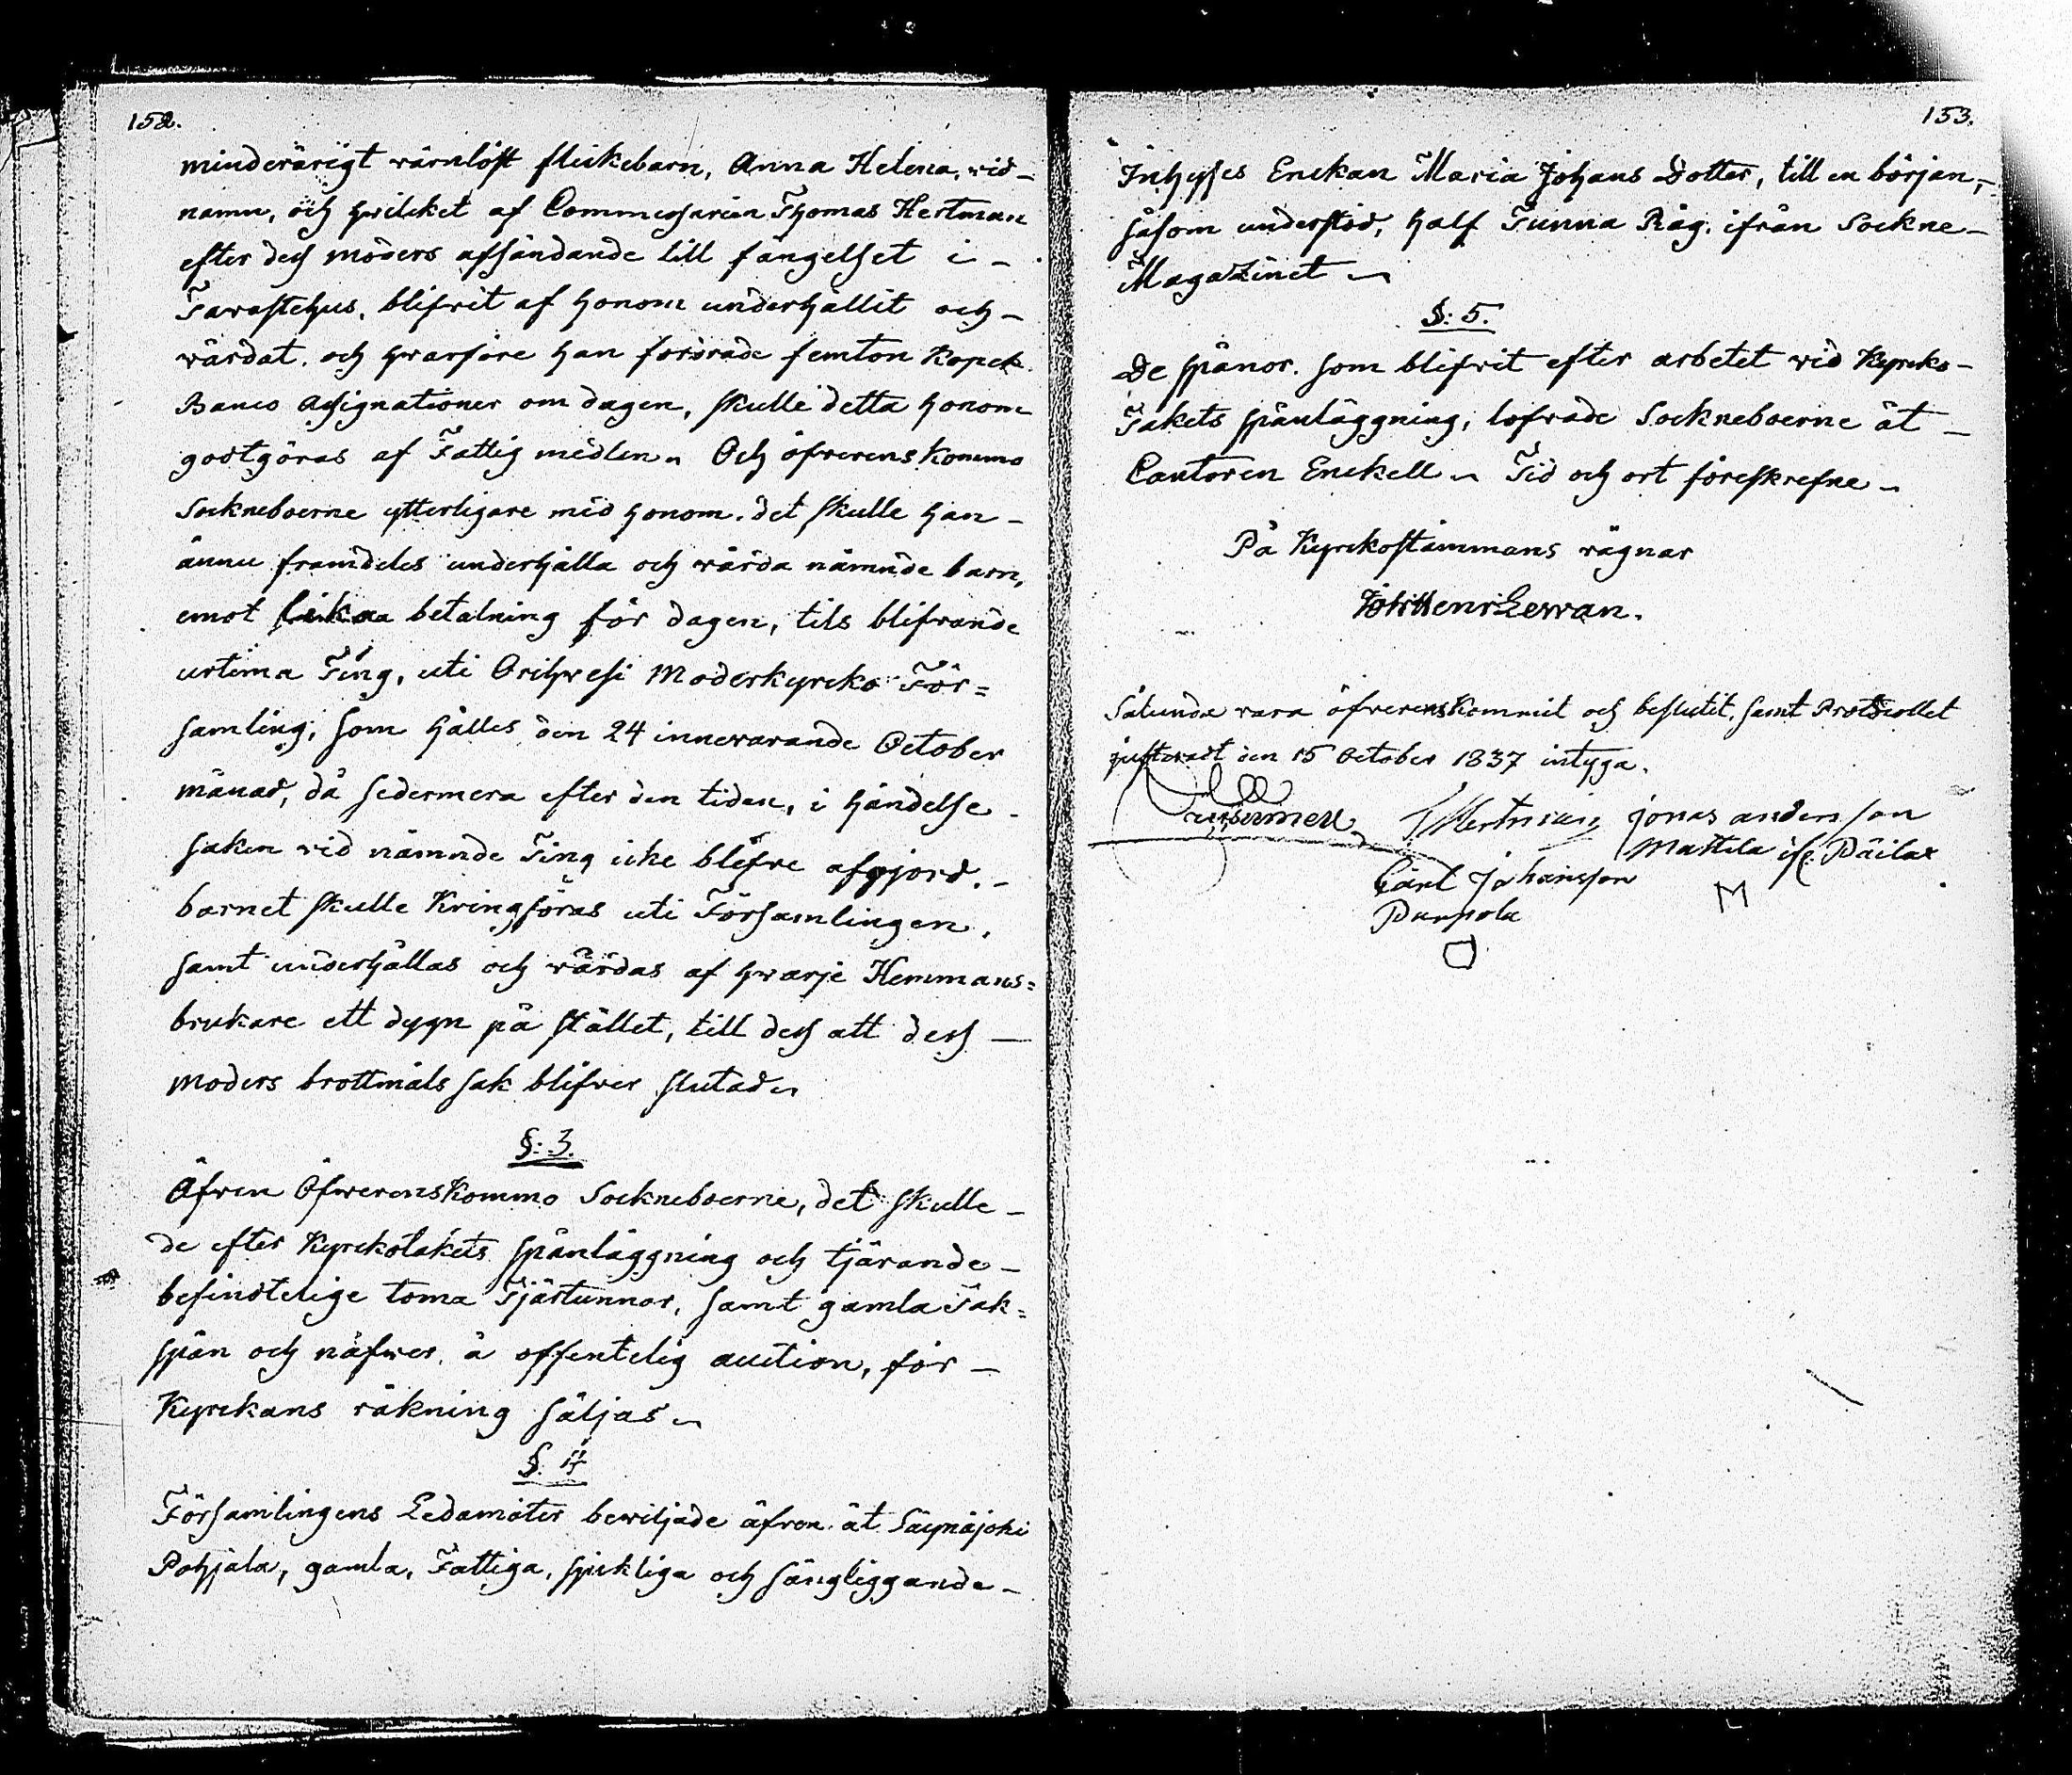 152.
minderårigt wårnlöst flickebarn, Anna Helena, wid-
namn, och hwilcket af Commissarien Thomas Hertman
efter dess moders afsändande till fängelset i -
Tavastehus, blifvit af honom underhållit och -
wårdat, och hwarföre han fordrade femton Kopek
Banco Assignationer om dagen, skulle detta honom
godtgöras af Fattig medlen. Och öfverenskommo
Sockneboerne ytterligare med honom, det skulle han -
ännu framdeles underhålla och wårda nämnde barn,
emot lika betalning för dagen, tils blifvande
urtima Ting, uti Orihvesi Moderkyrcko För=
samling, som hålles den 24 innevarande October
månad, då sedermera efter den tiden, i händelse -
saken vid nämnde Ting icke blefve afgjord. -
barnet skulle Kringföras uti Församlingen,
samt underhållas och wårdas af hwarje Hemmans=
brukare ett dygn på stället, till dess att dess -
moders brottmåls sak blifver slutad.
§: 3.
Äfven Öfverenskommo Sockneboerne, det skulle -
de efter Kyrckotakets spånläggning och tjärande -
befindtelige toma Tjärtunnor, samt gamla Tak=
spån och näfver, å offentelig auction, för -
Kyrckans räkning säljas.
§. 4
Församlingens Ledamöter beviljade äfven åt Säynäjoki
Pohjala, gamla, Fattiga, sjukliga och sängliggande -
153.
Inhyses Enckan Maria Johans Dotter, till en början, -
såsom understöd, half Tunna Råg, ifrån Sockne-
Magazinet
§: 5.
De spånor, som blifvit efter arbetet vid Kyrcko-
Takets spånläggning, lofvade Sockneboerne åt -
Cantoren Enckell. Tid och ort föreskrefne.
På Kyrckostämmans vägnar
Joh Henr Levvan.
Sålunda vara öfverenskommit och beslutit, samt Protocollet
justeradt den 15 October 1837 intyga.
T Hertman Jonas andersson
Mattila ifr. Päilax
Carl Johansson
M
Purpola